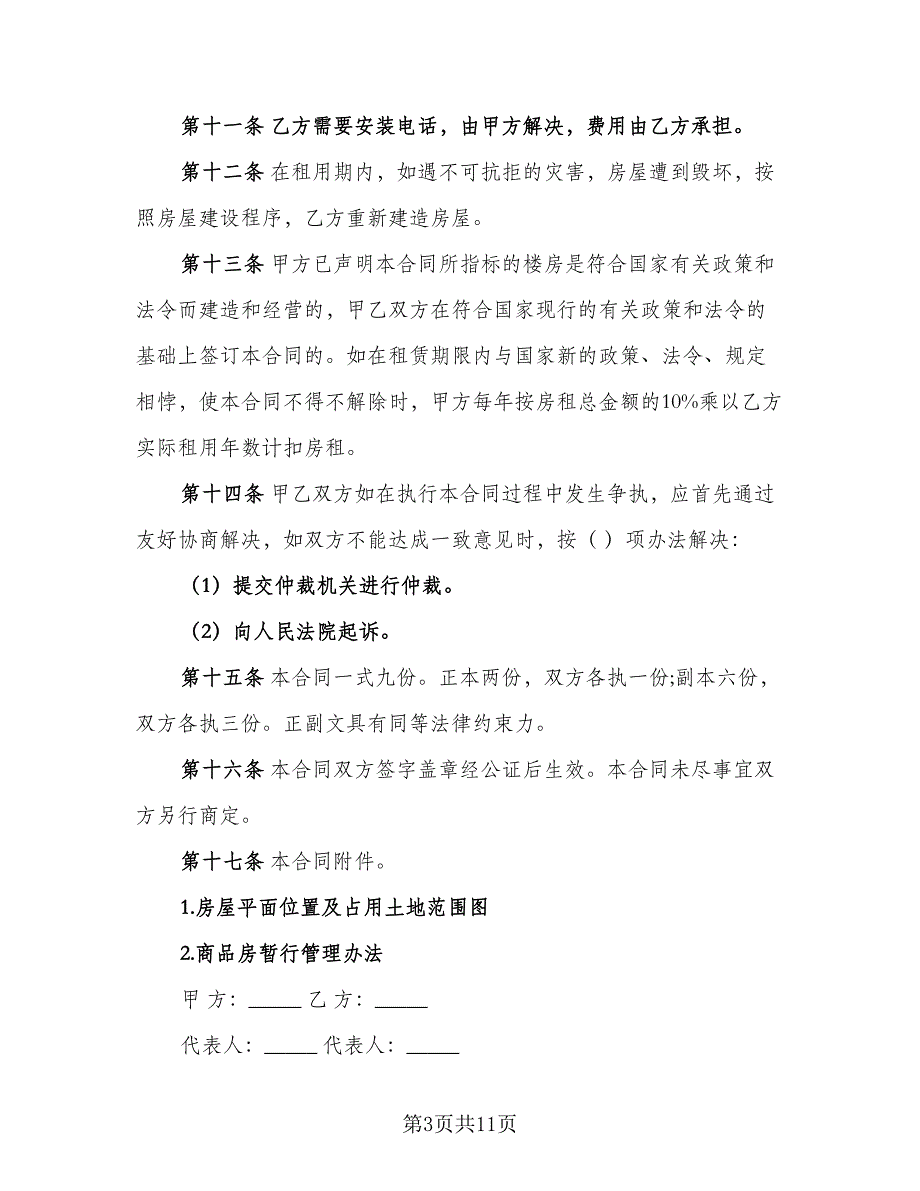 第十一条 乙方需要安装电话，由甲方解决，费用由乙方承担。
第十二条 在租用期内，如遇不可抗拒的灾害，房屋遭到毁坏，按
照房屋建设程序，乙方重新建造房屋。
第十三条 甲方已声明本合同所指标的楼房是符合国家有关政策和
法令而建造和经营的，甲乙双方在符合国家现行的有关政策和法令的
基础上签订本合同的。如在租赁期限内与国家新的政策、法令、规定
相悖，使本合同不得不解除时，甲方每年按房租总金额的10%乘以乙方
实际租用年数计扣房租。
第十四条 甲乙双方如在执行本合同过程中发生争执，应首先通过
友好协商解决，如双方不能达成一致意见时，按（ ）项办法解决：
（1）提交仲裁机关进行仲裁。
（2）向人民法院起诉。
第十五条 本合同一式九份。正本两份，双方各执一份;副本六份，
双方各执三份。正副文具有同等法律约束力。
第十六条 本合同双方签字盖章经公证后生效。本合同未尽事宜双
方另行商定。
第十七条 本合同附件。
1.房屋平面位置及占用土地范围图
2.商品房暂行管理办法
甲 方：_____ 乙 方：_____
代表人：_____ 代表人：_____
第3页共11页